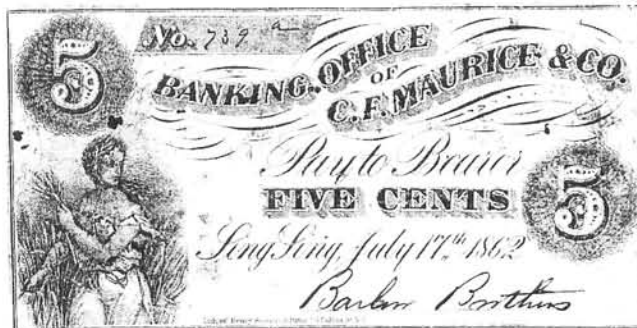 5
No. 739 a
BANKING OFFICE
OF
C. F. MAURICE & CO.
Pay to Bearer
FIVE CENTS
5
Sing Sing, July 17th 1862
Barlow Brothers